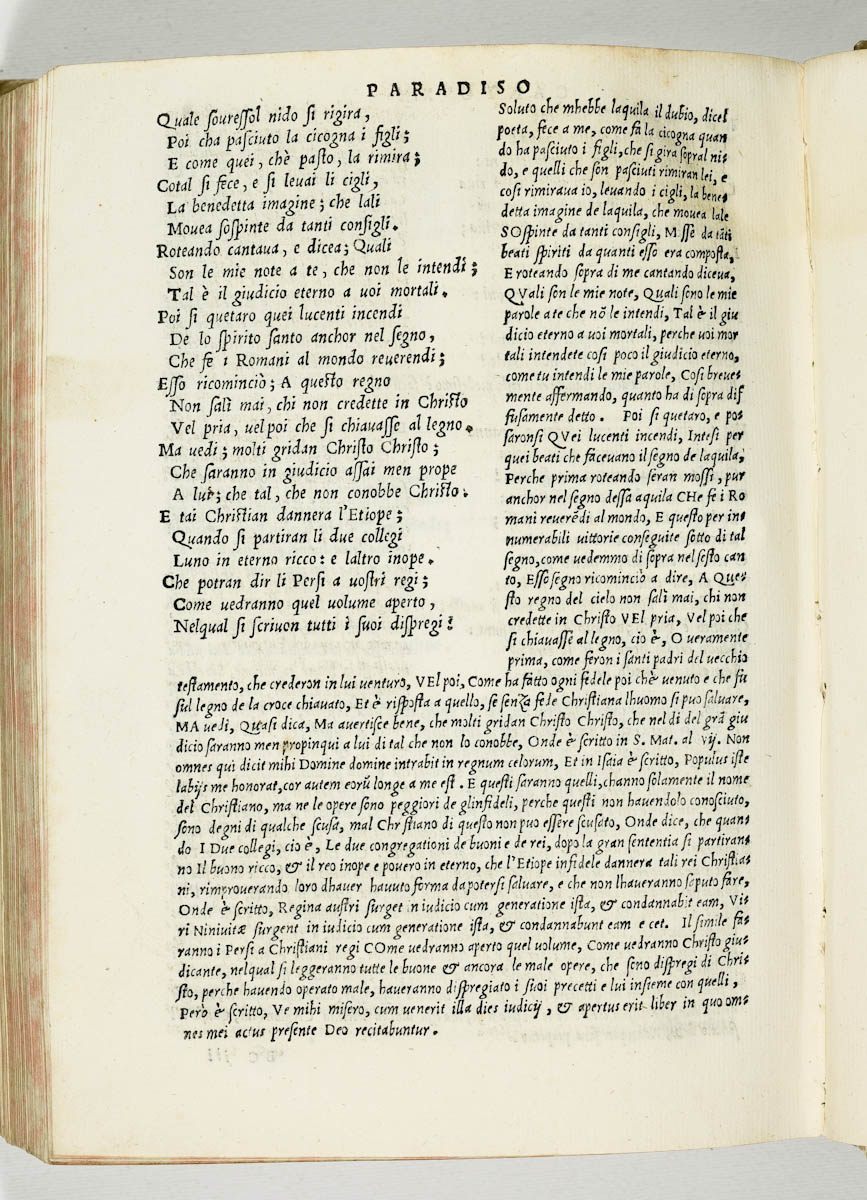 PARADISO
Quale souressol nido si rigira,
Poi cha pasciuto la cicogna i figli;
E come quei, chè pasto, la rimira;
Cotal si fece, e si leuai li cigli,
La benedetta imagine; che lali
Mouea sospinte da tanti consigli.
Roteando cantaua, e dicea; Quali
Son le mie note a te, che non le intendi;
Tal è il giudicio eterno a uoi mortali.
Poi si quetaro quei lucenti incendi
De lo spirito santo anchor nel segno,
Che fè i Romani al mondo reuerendi;
Esso ricominciò; A questo regno
Non salì mai, chi non credette in Christo
Vel pria, uel poi che si chiauasse al legno.
Ma uedi; molti gridan Christo Christo;
Che saranno in giudicio assai men prope
A lui; che tal, che non conobbe Christo.
E tai Christian dannera l'Etiope;
Quando si partiran li due collegi
Luno in eterno ricco: e laltro inope.
Che potran dir li Persi a uostri regi;
Come uedranno quel uolume aperto,
Nelqual si scriuon tutti i suoi dispregi?
Soluto che mhebbe laquila il dubio, dicel
poeta, fece a me, come fa la cicogna quan
do ha pasciuto i figli, che si gira sopral ni-
do, e quelli che son pasciuti rimiran lei, e
cosi rimiraua io, leuando i cigli, la bene-
detta imagine de laquila, che mouea lale
SOspinte da tanti consigli, Mssè da tãti
beati spiriti da quanti esso era composta,
E roteando sopra di me cantando diceua,
QVali son le mie note, Quali sono le mie
parole a te che nõ le intendi, Tal è il giu
dicio eterno a uoi mortali, perche uoi mor
tali intendete cosi poco il giudicio eterno,
come tu intendi le mie parole, Cosi breue-
mente affermando, quanto ha di sopra dif
fusamente detto. Poi si quetaro, e po-
saronsi QVei lucenti incendi, Intesi per
quei beati che faceuano il segno de laquila,
Perche prima roteando seran mossi, pur
anchor nel segno dessa aquila CHe fè i Ro
mani reuerẽdi al mondo, E questo per in-
numerabili uittorie conseguite sotto di tal
segno, come uedemmo di sopra nel sesto can
to, Esso segno ricominciò a dire, A Que-
sto regno del cielo non salì mai, chi non
credette in Christo VEl pria, Vel poi che
si chiauasse al legno, cio è, O ueramente
prima, come feron i santi padri del uecchio
testamento, che crederon in lui uenturo, VEl poi, Come ha fatto ogni fedele poi chè uenuto e che fu
sul legno de la croce chiauato, Et è risposta a quello, se senza fede Christiana lhuomo si puo saluare,
MA uedi, Quasi dica, Ma auertisce bene, che molti gridan Christo Christo, che nel di del grã giu
dicio saranno men propinqui a lui di tal che non lo conobbe, Onde è scritto in S. Mat. al vij. Non
omnes qui dicit mihi Domine domine intrabit in regnum celorum, Et in Isaia è scritto, Populus iste
labijs me honorat, cor autem eorũ longe a me est. E questi saranno quelli, channo solamente il nome
del Christiano, ma ne le opere sono peggiori de glinfideli, perche questi non hauendolo conosciuto,
sono degni di qualche scusa, mal Christiano di questo non puo essere scusato, Onde dice, che quan-
do I Due collegi, cio è, Le due congregationi de buoni e de rei, dopo la gran sententia si partiran-
no Il buono ricco, & il reo inope e pouero in eterno, che l'Etiope infidele dannera tali rei Christia-
ni, rimprouerando loro dhauer hauuto forma da potersi saluare, e che non lhaueranno saputo fare,
Onde è scritto, Regina austri surget in iudicio cum generatione ista, & condannabit eam, Vi-
ri Niniuitæ surgent in iudicio cum generatione ista, & condannabunt eam e cet. Il simile fa-
ranno i Persi a Christiani regi COme uedranno aperto quel uolume, Come uedranno Christo giu-
dicante, nelqual si leggeranno tutte le buone & ancora le male opere, che sono dispregi di Chri-
sto, perche hauendo operato male, haueranno dispregiato i suoi precetti e lui insieme con quelli,
Però è scritto, Ve mihi misero, cum uenerit illa dies iudicij, & apertus erit liber in quo om-
nes mei actus presente Deo recitabuntur.